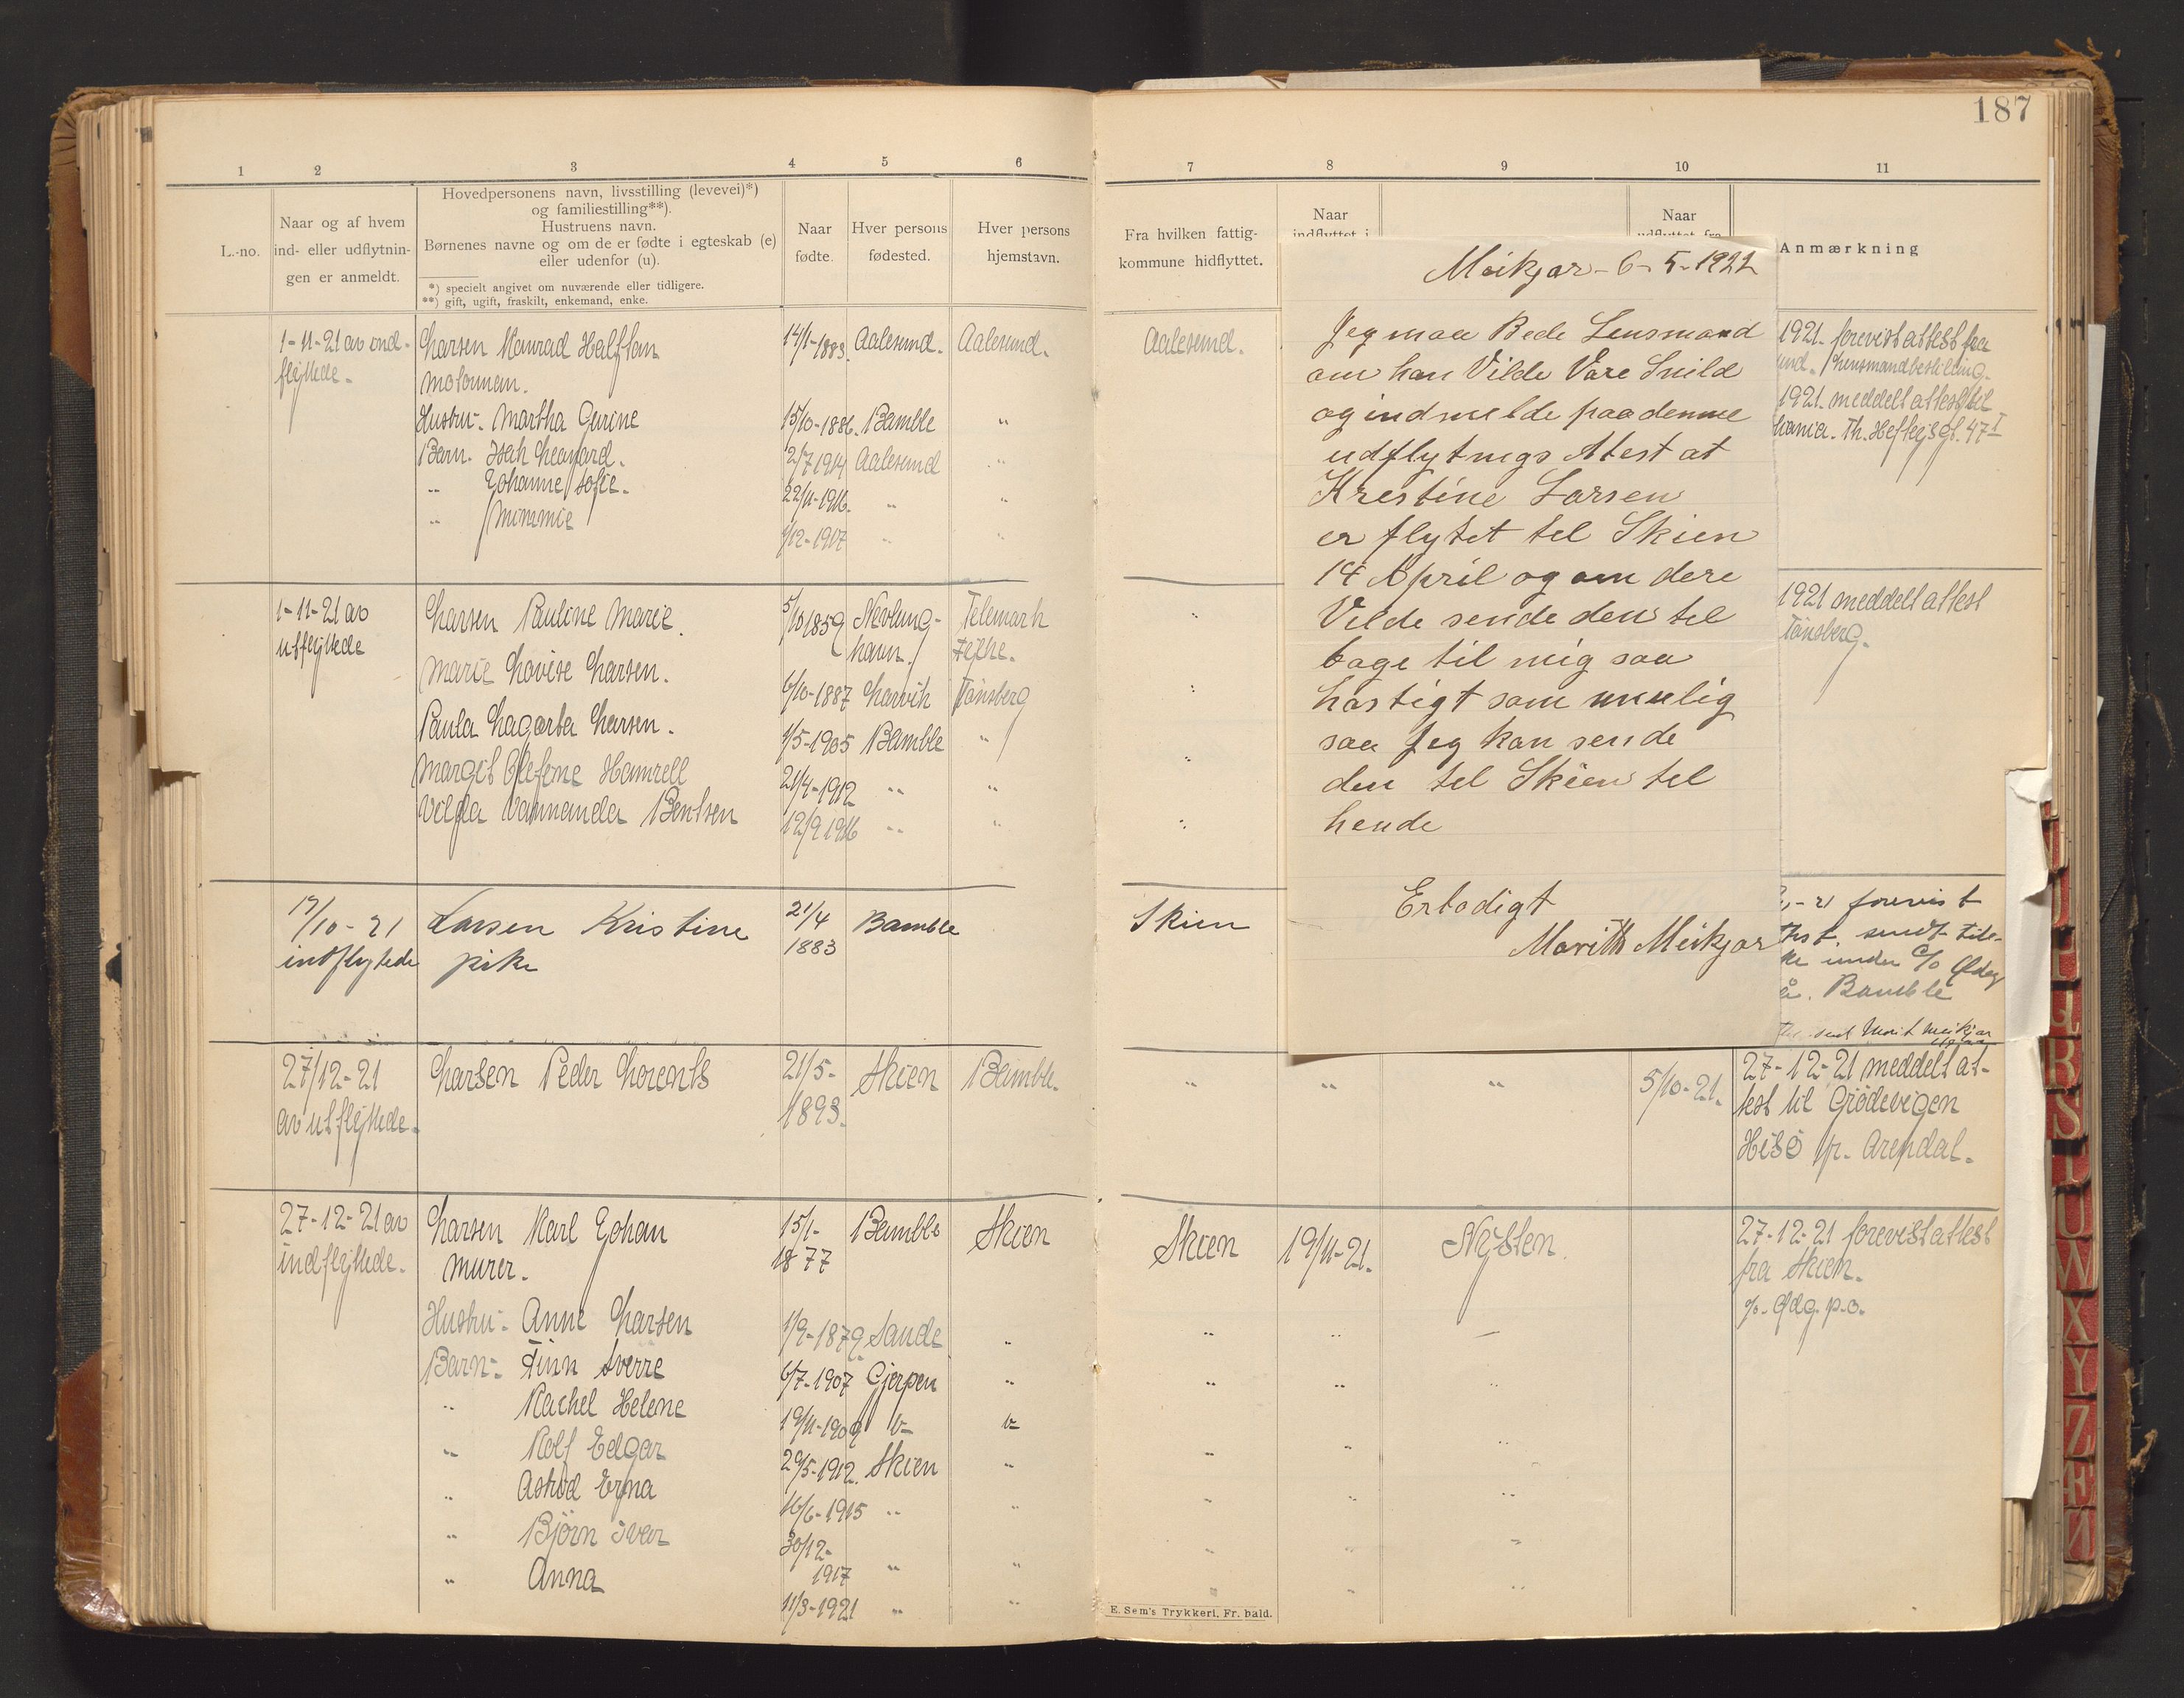 187
1 2 3 4 5 6
L.-no.
Naar og af hvem
ind- eller udflytnin-
gen er anmeldt.
Hovedpersonens navn, livsstilling (levevei)*)
og familiestilling**).
Hustruens navn.
Børnenes navne og om de er fødte i egteskab (e)
eller udenfor (u).
*) specielt angivet om nuværende eller tidligere.
**) gift, ugift, fraskilt, enkemand, enke.
Naar
fødte.
Hver persons
fødested.
Hver persons
hjemstavn.
1-11-21 av ind-
flyttede.
Larsen Konrad Halfdan 14/1-1883. Aalesund. Aalesund.
Hustru- Martha Gurine 15/10-1886. Bamble "
Barn. Leonard. 2/7 1914 Aalesund "
" Johanne Sofie. 22/11-1916. " "
" Mimmie /12-1917 " "
1-11-21 av
utflyttede
Larsen Pauline Marie. 5/10 1859 Nevlung-
havn. Telemark
fylke.
Marie Lovise Larsen. 6/10-1887 Larvik Tønsberg
Paula Dagorta Larsen. 1/5-1905 Bamble "
Margit Olefine 21/4-1912 " "
Bentsen 12/9 1916 " "
17/10-21
indflytede
Larsen Kristine
pike
21/4
1883
Bamble
27/12-21
av utflyttede.
Larsen Peder Lorents
21/5-
1893.
Skien Bamble.
27-12-21 av
indflyttede.
Larsen Karl Johan
murer.
15/1-
1877
Bamble Skien
Hustru- Anne Larsen 1/9-1879 Sande "
Barn- Finn Sverre 6/7-1907 Gjerpen "
" Rachel Helene 19/11-1909
" Rolf Edgar 29/5-1912. Skien "
" Astrid Erna 16/6-1915 " "
" Bjørn Ivar 30/12-
1917 " "
" Anna 11/3-1921 " "
7 8 9 10 11
Fra hvilken fattig-
kommune hidflyttet.
Naar
indflyttet i
Naar
udflyttet fra
Anmærkning
Aalesund.
Meikjar- 6-5-1922
Jeg maa Bede Lensmand
om han Vilde Være Snild
og indmelde paa denne
udflytnigs Atest at
Krestine Larsen
er flytet tel Skien
14 April og om dere
Vilde sende den tel
bage til mig saa
hastigt som muelig
saa Jeg kan sende
den tel Skien tel
hende
Erbodigt
Marith Meikjar
1921. forevist attest fra
und. Lensmandbestilling.
1921. meddelt attest til
Th. Heftyesgt. 47 I
1921 meddelt attest
Tønsberg.
Skien
-21 forevist
sendt til-
under c/o
Bamble
sendt Marit Meikjar
" " " 5/10-21.
27-12-21 meddelt at-
test til Gjødevigen
Hisø pr. Arendal.
Skien 19/11-21. Nysten.
27-12-21 forevist attest
fra Skien.
p.o.
E. Sem's Trykkeri. Fr.hald.
R S T U W X Y Z Æ Ø